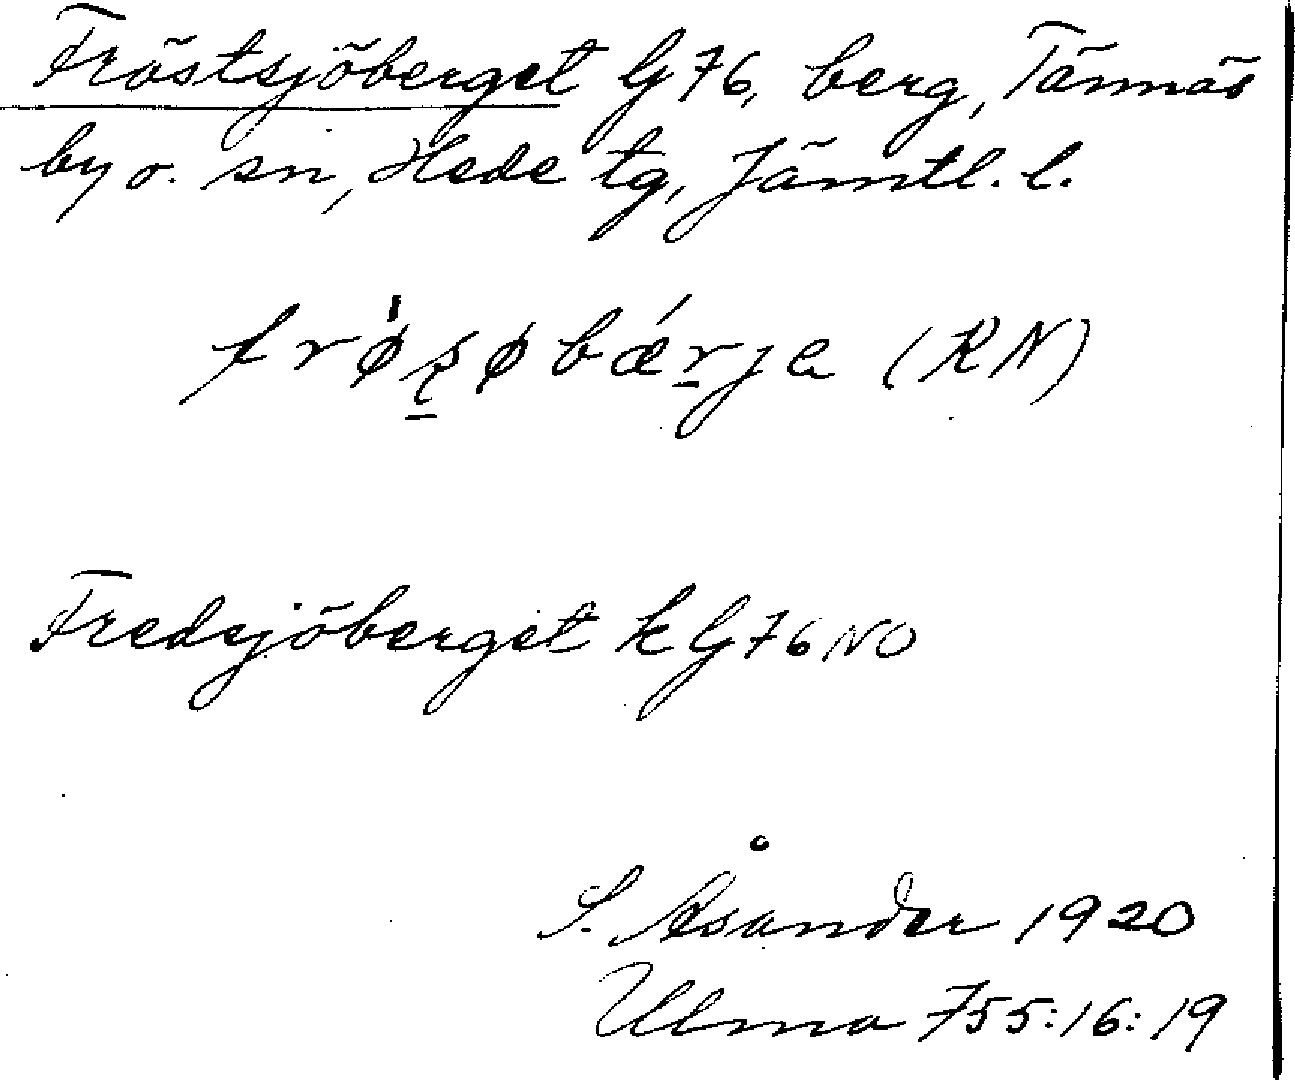 Fröstsjöberget G 76, berg, Tännäs
by o. sn, Hede tg, Jämtl. l.
frǿʂøbǽrja (RN)
Fredsjöberget k G 76 NO
S. Åsander 1920
Ulma 755:16:19